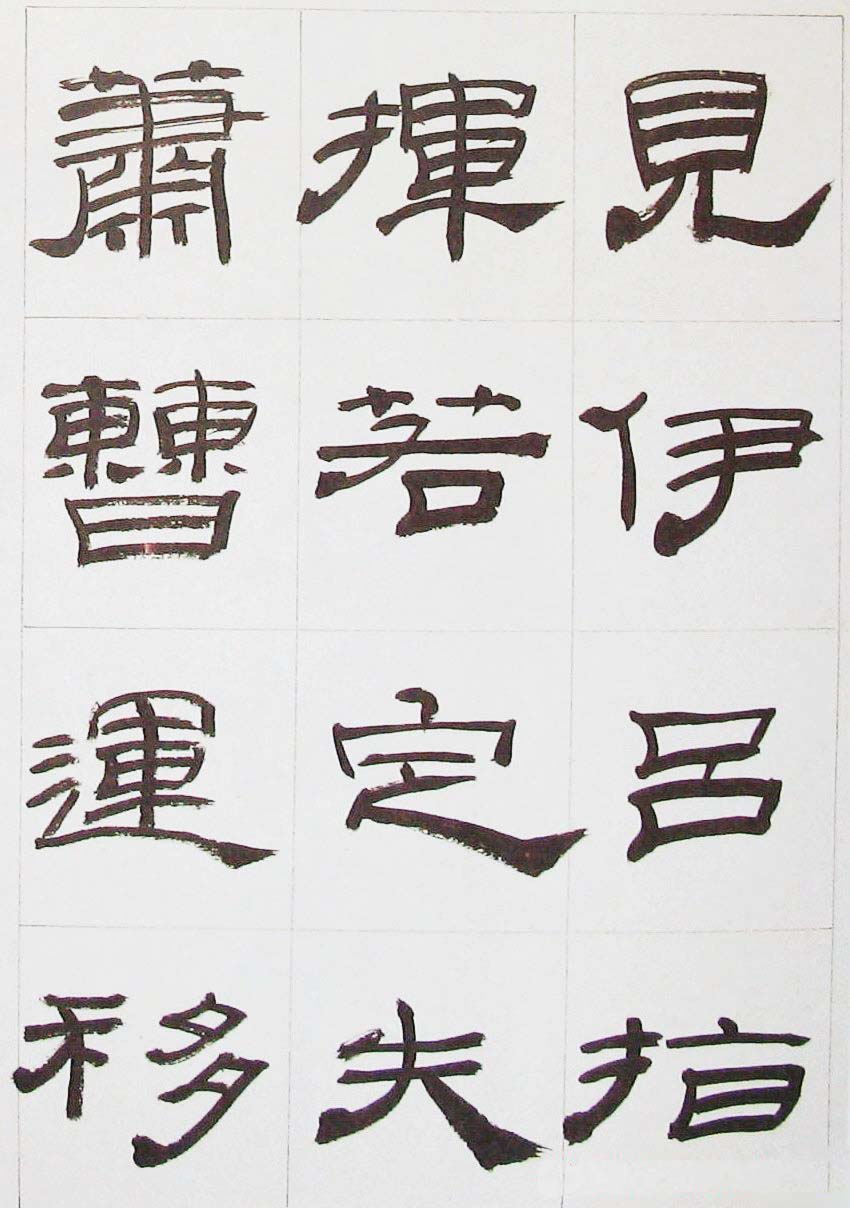 見伊呂指
揮若定失
蕭曹運移